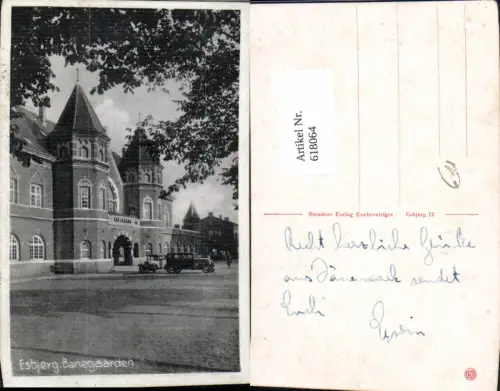 Esbjerg. Banegaarden
Artikel Nr.
618064
Stenders Forlag Eneberettiget Esbjerg 12
Recht herzliche Grüße
aus Dänemark sendet
Euch
Erwin